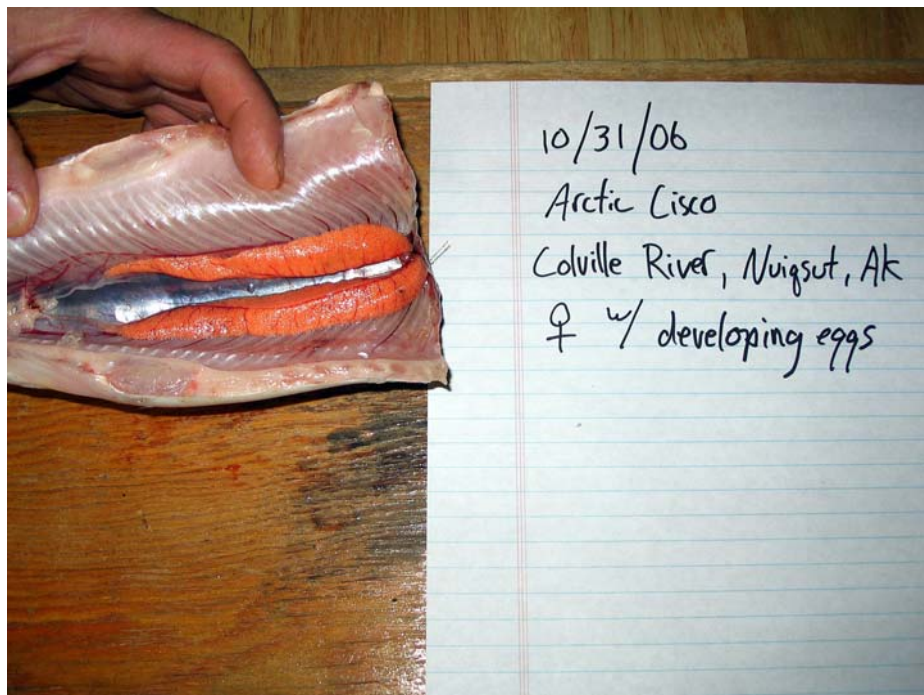 10/31/06
Arctic Cisco
Colville River, Nuiqsut, Ak
♀ w/ developing eggs